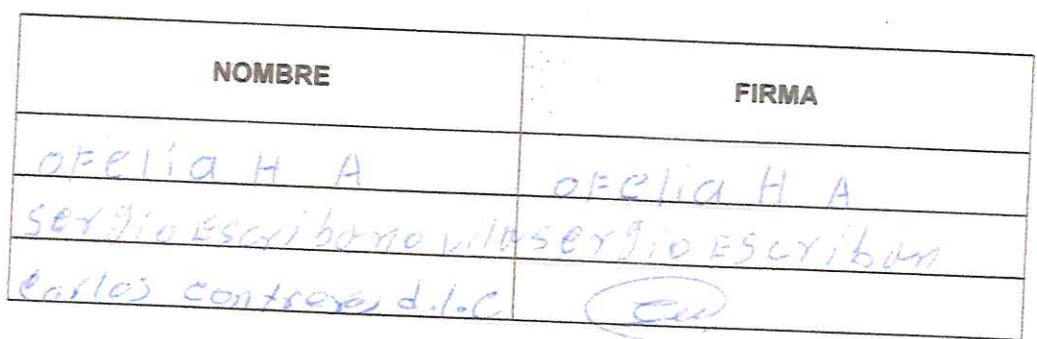 NOMBRE FIRMA
OFelia H A OFelia H A
sergio Escribano villa sergio Escriban
Carlos contreras d.l.C